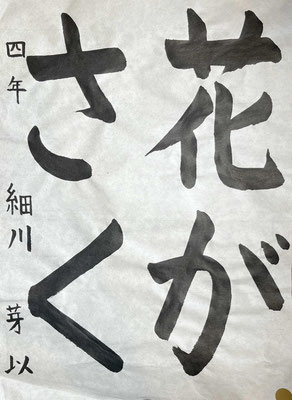 花が
さく
四年 細川 芽以